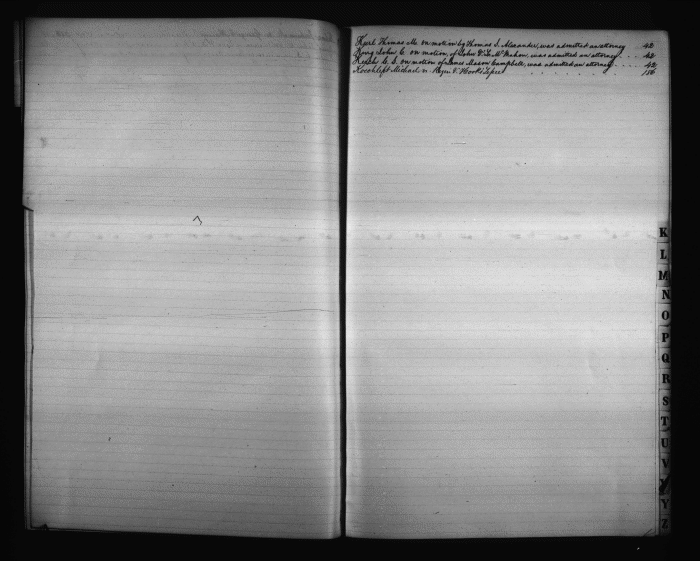 Karl Thomas M. on motion by Thomas S. Alexander, was admitted an attorney 42
King John C. on motion, of John V. L. McMahon, was admitted an attorney . . . . 42
Keech C. C. on motion of James Mason Campbell, was admitted an attorney . . . . 42
Michael n. . . . . . 156
K
L
M
N
O
P
Q
R
S
T
U
V
Y
Z